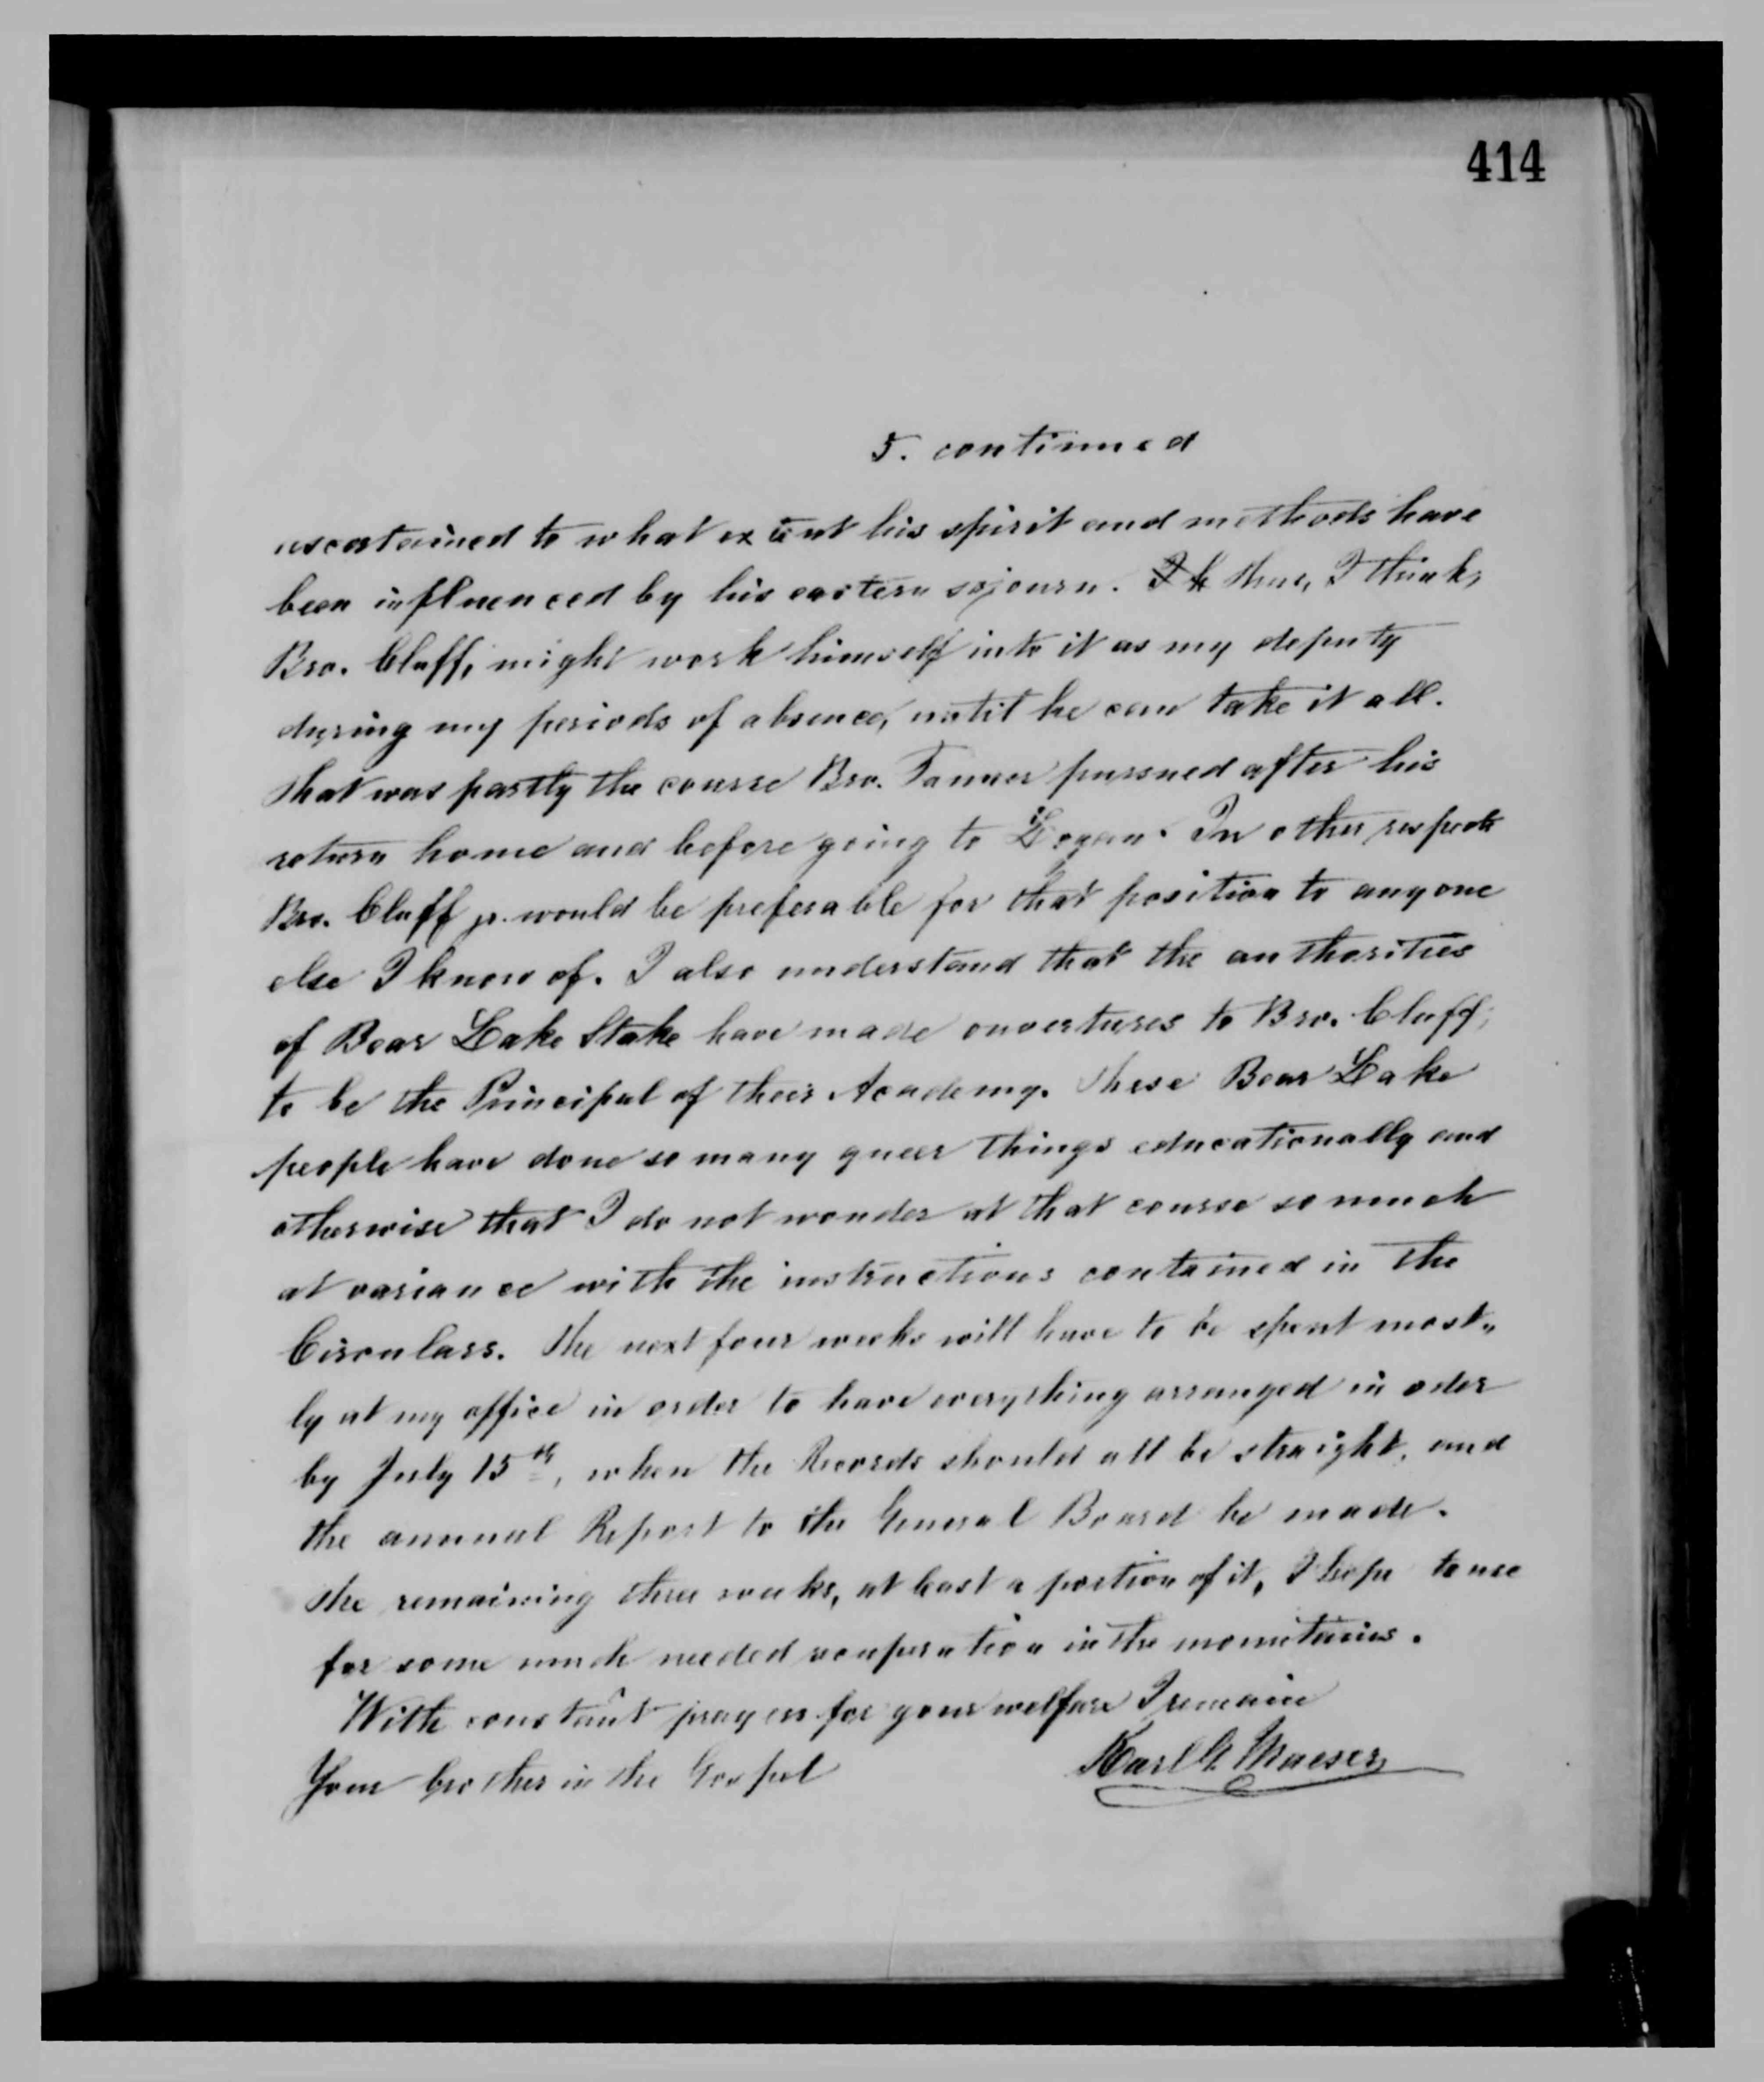 414
5. continued
ascertained to what extent his spirit and methods have
been influenced by his eastern sojourn. Thus, I think,
Bro. Cluff, might work himself into it as my deputy
during my periods of absence, until he can take it all.
That was partly the course Bro. Tanner pursued after his
return home and before going to Logan. In other respects
Bro. Cluff jr. would be preferable for that position to anyone
else I know of. I also understand that the authorities
of Bear Lake Stake have made ouvertures to Bro. Cluff,
to be the Principal of their Academy. These Bear Lake
people have done so many queer things educationally and
otherwise that I do not wonder at that course so much
at variance with the instructions contained in the
Circulars. The next four weeks will have to be spent most„
ly at my office in order to have everything arranged in oder
by July 15th, when the Records should all be straight, and
the annual Report to the General Board be made.
The remaining three weeks, at least a portion of it, I hope to use
for some much needed recuperation in the mountains.
With constant prayers for your welfare I remain
Your brother in the Gospel
Karl G. Maeser